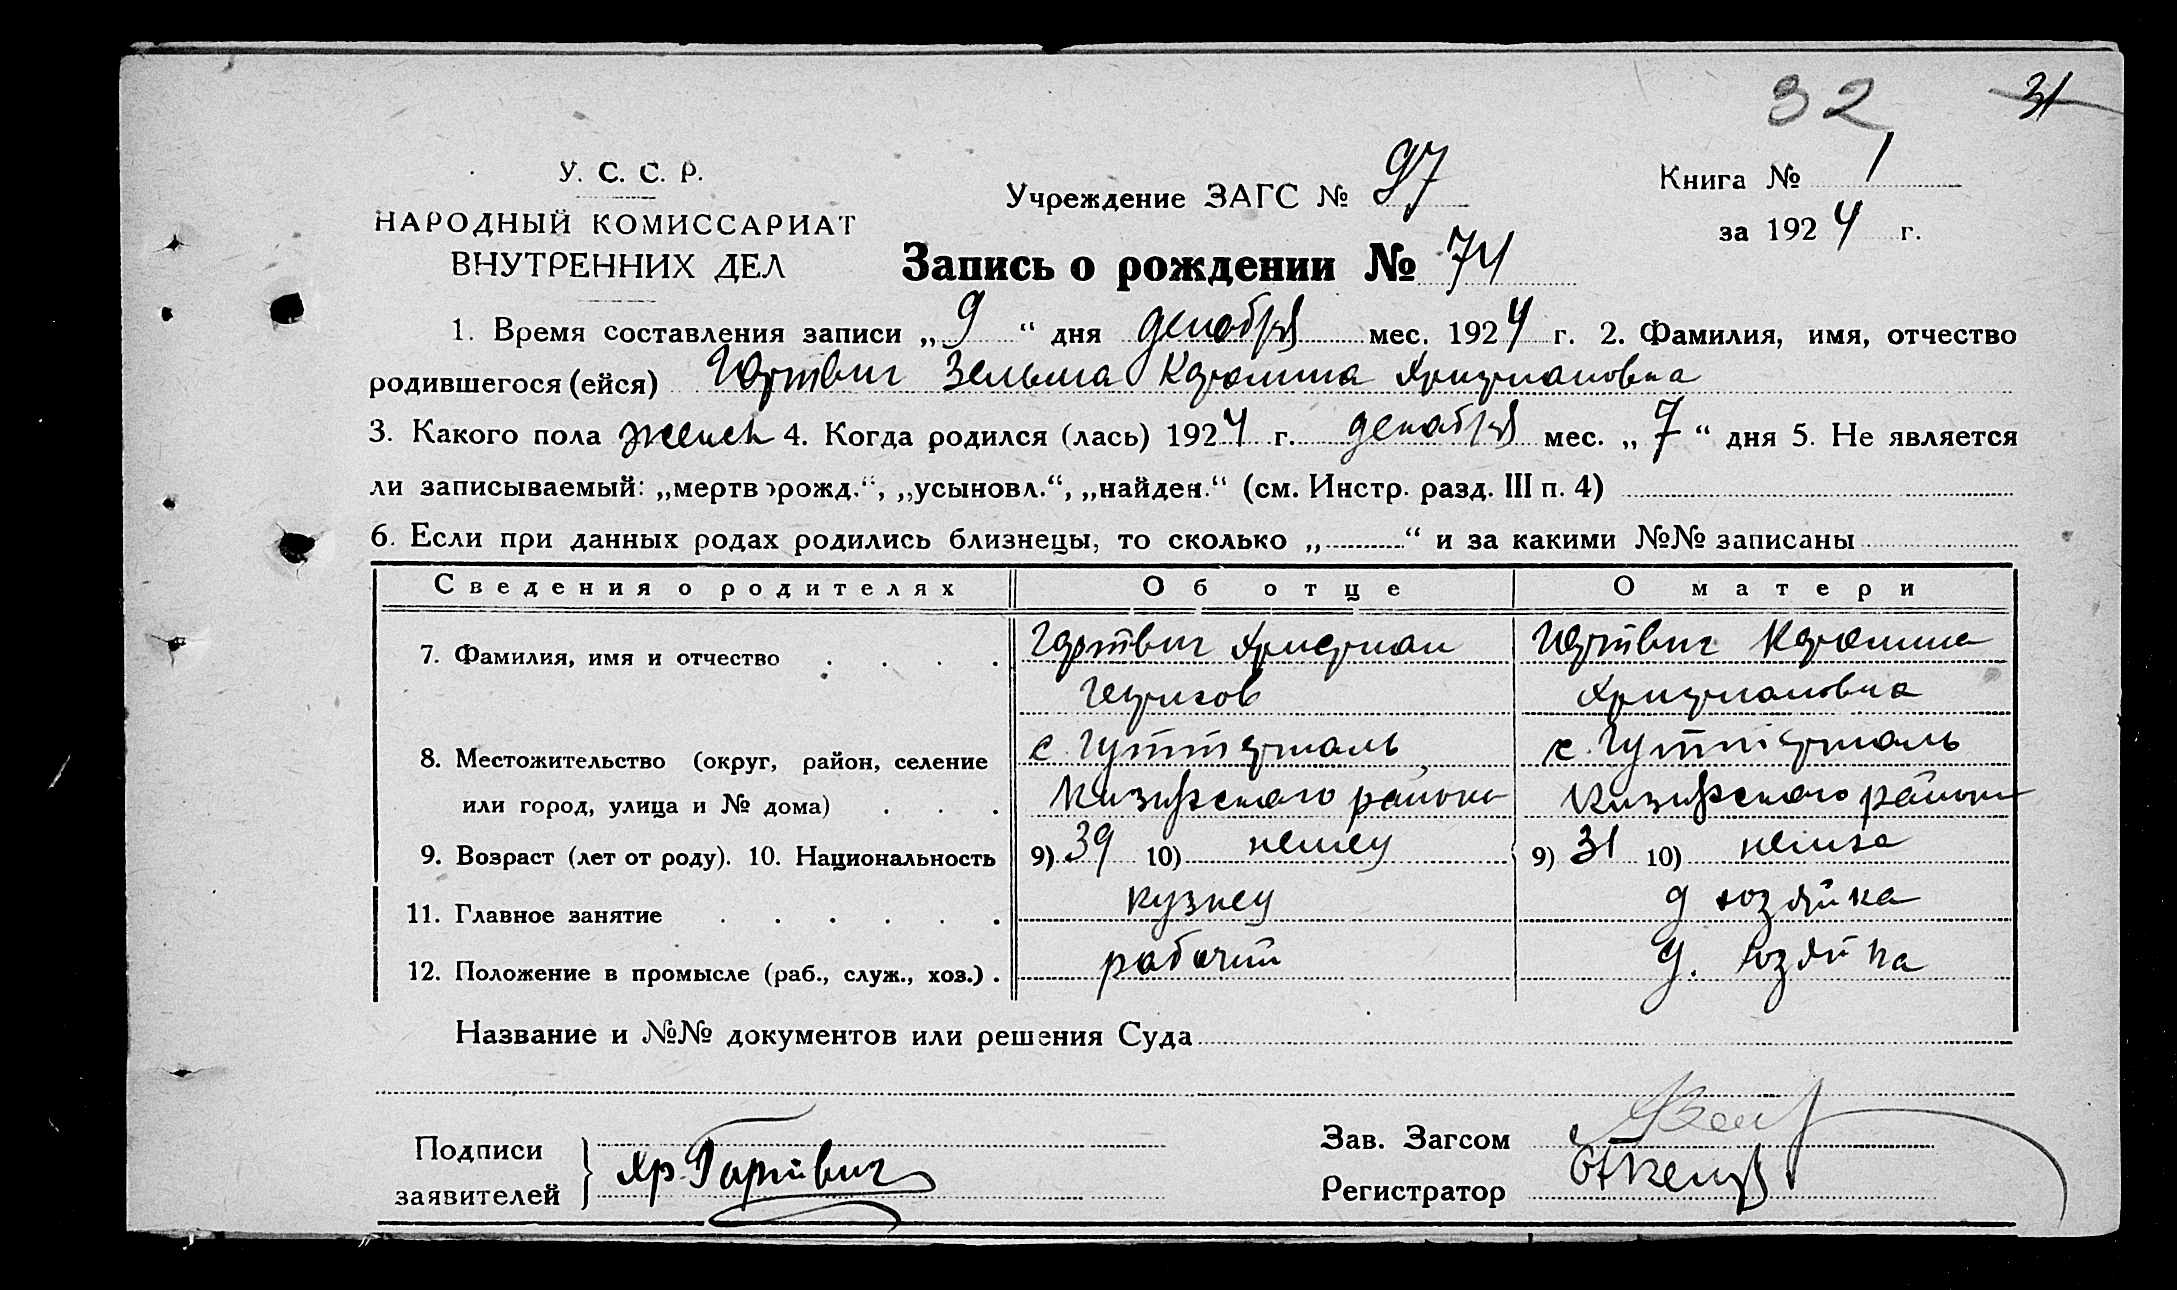 32 31
У. С. С. Р.
НАРОДНЫЙ КОМИССАРИАТ
ВНУТРЕННИХ ДЕЛ
Учреждение ЗАГС № 97
Книга № 1
за 1924 г.
Запись о рождении № 74
1. Время составления записи „9“ дня декабря мес. 1924 г. 2. Фамилия, имя, отчество
родившегося (ейся) Гартвиг Зельма Каролина Христиановна
3. Какого пола женск 4. Когда родился (лась) 1924 г. декабря мес. „7“ дня 5. Не является
ли записываемый: „мертворожд.“, „усыновл.“, „найден.“ (см. Инстр. разд. III п. 4)
6. Если при данных родах родились близнецы, то сколько „ “ и за какими №№ записаны
Сведения о родителях Об отце О матери
7. Фамилия, имя и отчество Гартвиг Христиан Гартвиг Каролина
Христиановна
8. Местожительство (округ, район, селение с. Гуттерталь с. Гуттерталь
или город, улица и № дома) района района
9. Возраст (лет от роду). 10. Национальность 9) 39 10) немец 9) 31 10) немка
11. Главное занятие кузнец д хозяйка
12. Положение в промысле (раб., служ., хоз.) рабочий д. хозяйка
Название и №№ документов или решения Суда
Подписи
заявителей Хр. Гартвиг
Зав. Загсом
Регистратор